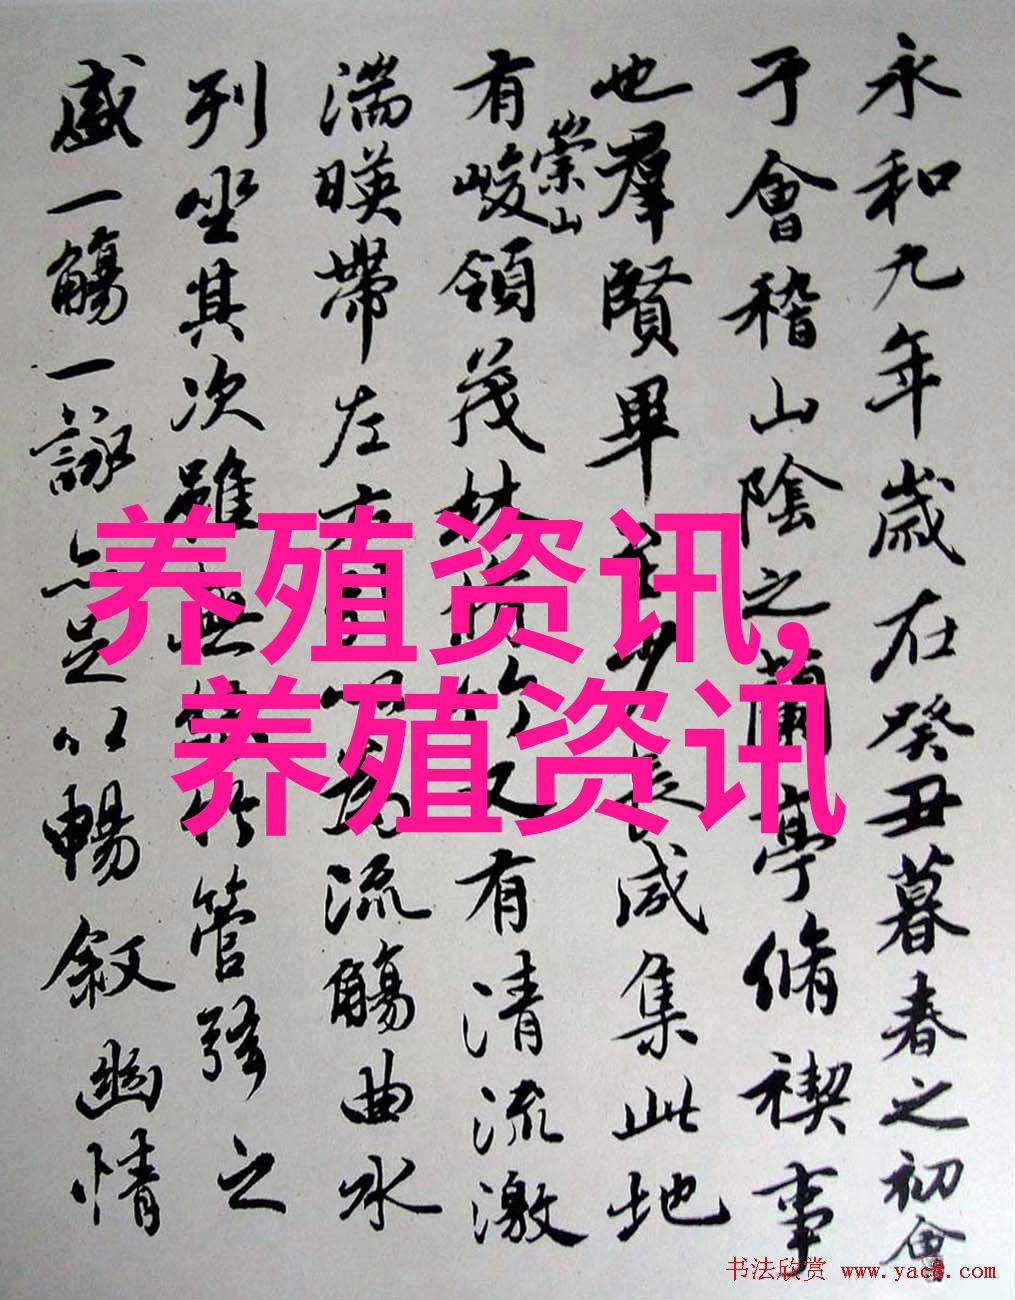 永和九年歲在癸丑暮春之初會
于會稽山陰之蘭亭脩禊事
也羣賢畢至少長咸集此地
有崇山峻領茂林脩竹又有清流激
湍暎帶左右引以為流觴曲水
列坐其次雖無絲竹管弦之
盛一觴一詠亦足以暢敘幽情
养殖资讯,
养殖资讯
书法欣赏 www.yac8.com